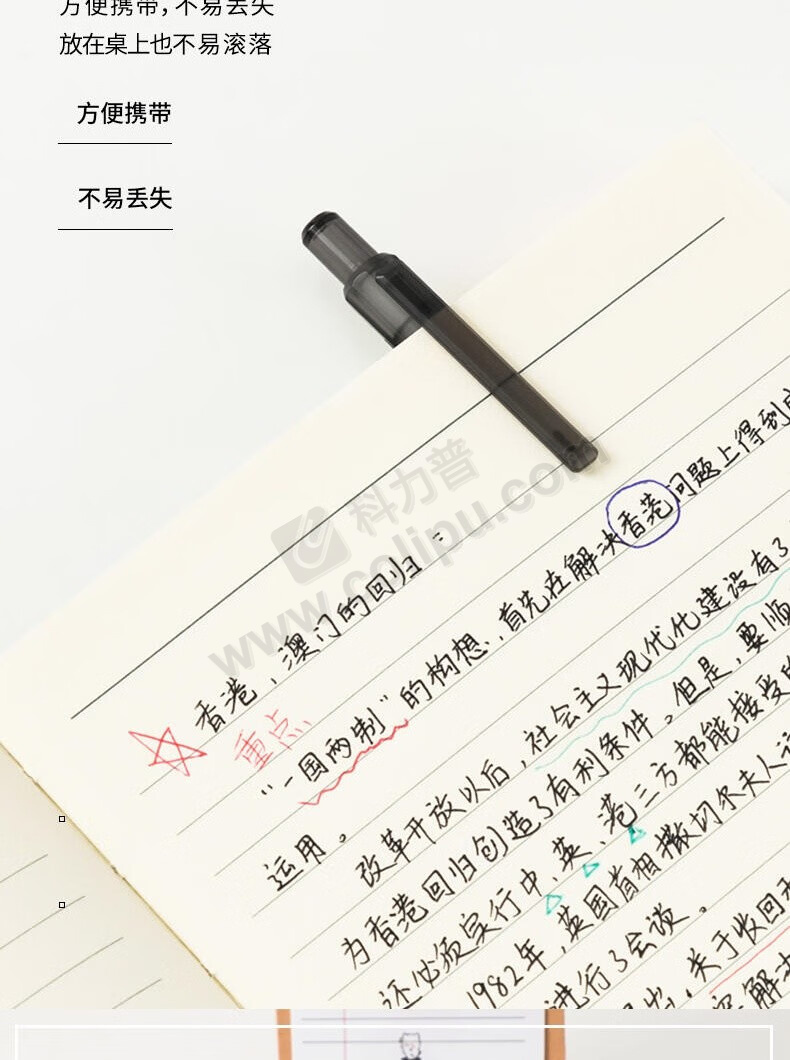 方便携带，不易丢失
放在桌上也不易滚落
方便携带
不易丢失
科力普
www.colipu.com
香港，澳门的回归：
重点
“一国两制”的构想，首先在解决香港问题上得到
运用。
改革开放以后，社会主义现代化建设有了
为香港回归创造了有利条件。但是，要顺
还必须实行中、英、港三方都能接受的
1982年，英国首相撒切尔夫人访
进行了会谈。
关于收回
解决